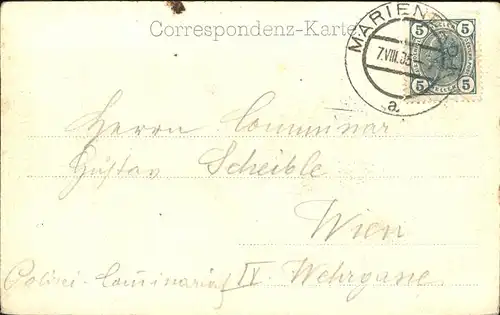 Correspondenz-Karte
MARIEN
7.VIII.
a
5 5
5 5
Herrn Comminar
Gustav Scheible
Wien
Polizei-Comminariat IV. Wehrgasse.